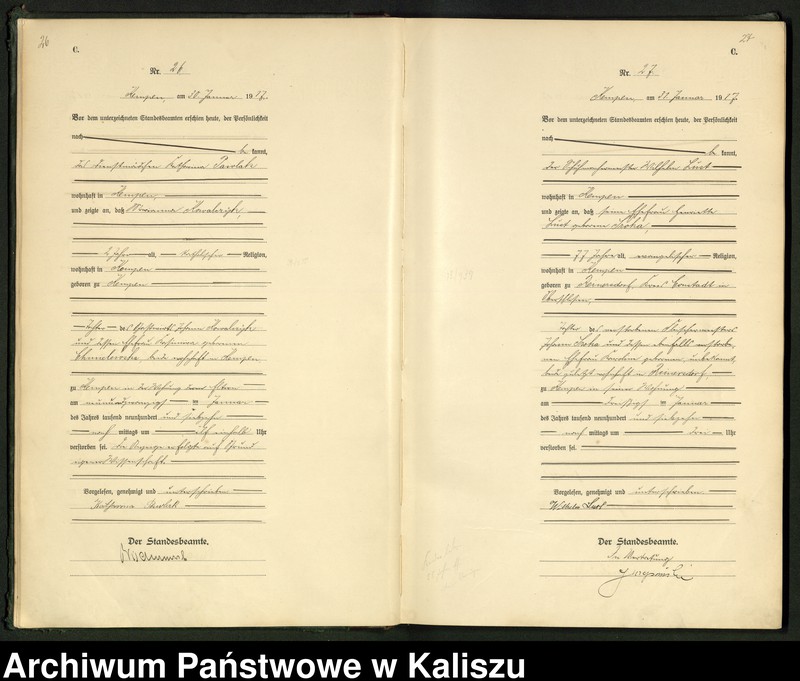 26
C.
Nr. 26
Kempen am 30. Januar 1917.
Vor dem unterzeichneten Standesbeamten erschien heute, der Persönlichkeit
nach
be kannt,
das Dienstmädchen Katharina Pawlak
wohnhaft in Kempen,
und zeigte an, daß Marianna
2 Jahre alt, katholischer Religion,
wohnhaft in Kempen
geboren zu Kempen
Tochter des Johann
und dessen Ehefrau geborenen
beide wohnhaft in Kempen
zu Kempen in der Wohnung ihrer Eltern
am neunundzwanzigsten Januar
des Jahres tausend neunhundert und siebzehn
nach mittags um elf einhalb Uhr
verstorben sei. Die Anzeige erfolgte auf Grund
eigener Wissenschaft.
Vorgelesen, genehmigt und unterschrieben
Katharina Pawlak
Der Standesbeamte.
27
C.
Nr. 27
Kempen am 31. Januar 1917.
Vor dem unterzeichneten Standesbeamten erschien heute, der Persönlichkeit
nach
be kannt,
der Wilhelm Lust
wohnhaft in Kempen
und zeigte an, daß seine Ehefrau Henriette
Lust geborene
77 Jahre alt, evangelischer Religion,
wohnhaft in Kempen
geboren zu Reinersdorf, Kreis in
Oberschlesien,
Tochter des verstorbenen Fleischermeisters
Johann und dessen ebenfalls verstorbe-
nen Ehefrau geborenen, unbekannt,
beide zuletzt wohnhaft in Reinersdorf,
zu Kempen in seiner Wohnung
am dreißigsten Januar
des Jahres tausend neunhundert und siebzehn
nach mittags um drei Uhr
verstorben sei.
Vorgelesen, genehmigt und unterschrieben
Wilhelm Lust
Der Standesbeamte.
In Vertretung
Archiwum Państwowe w Kaliszu